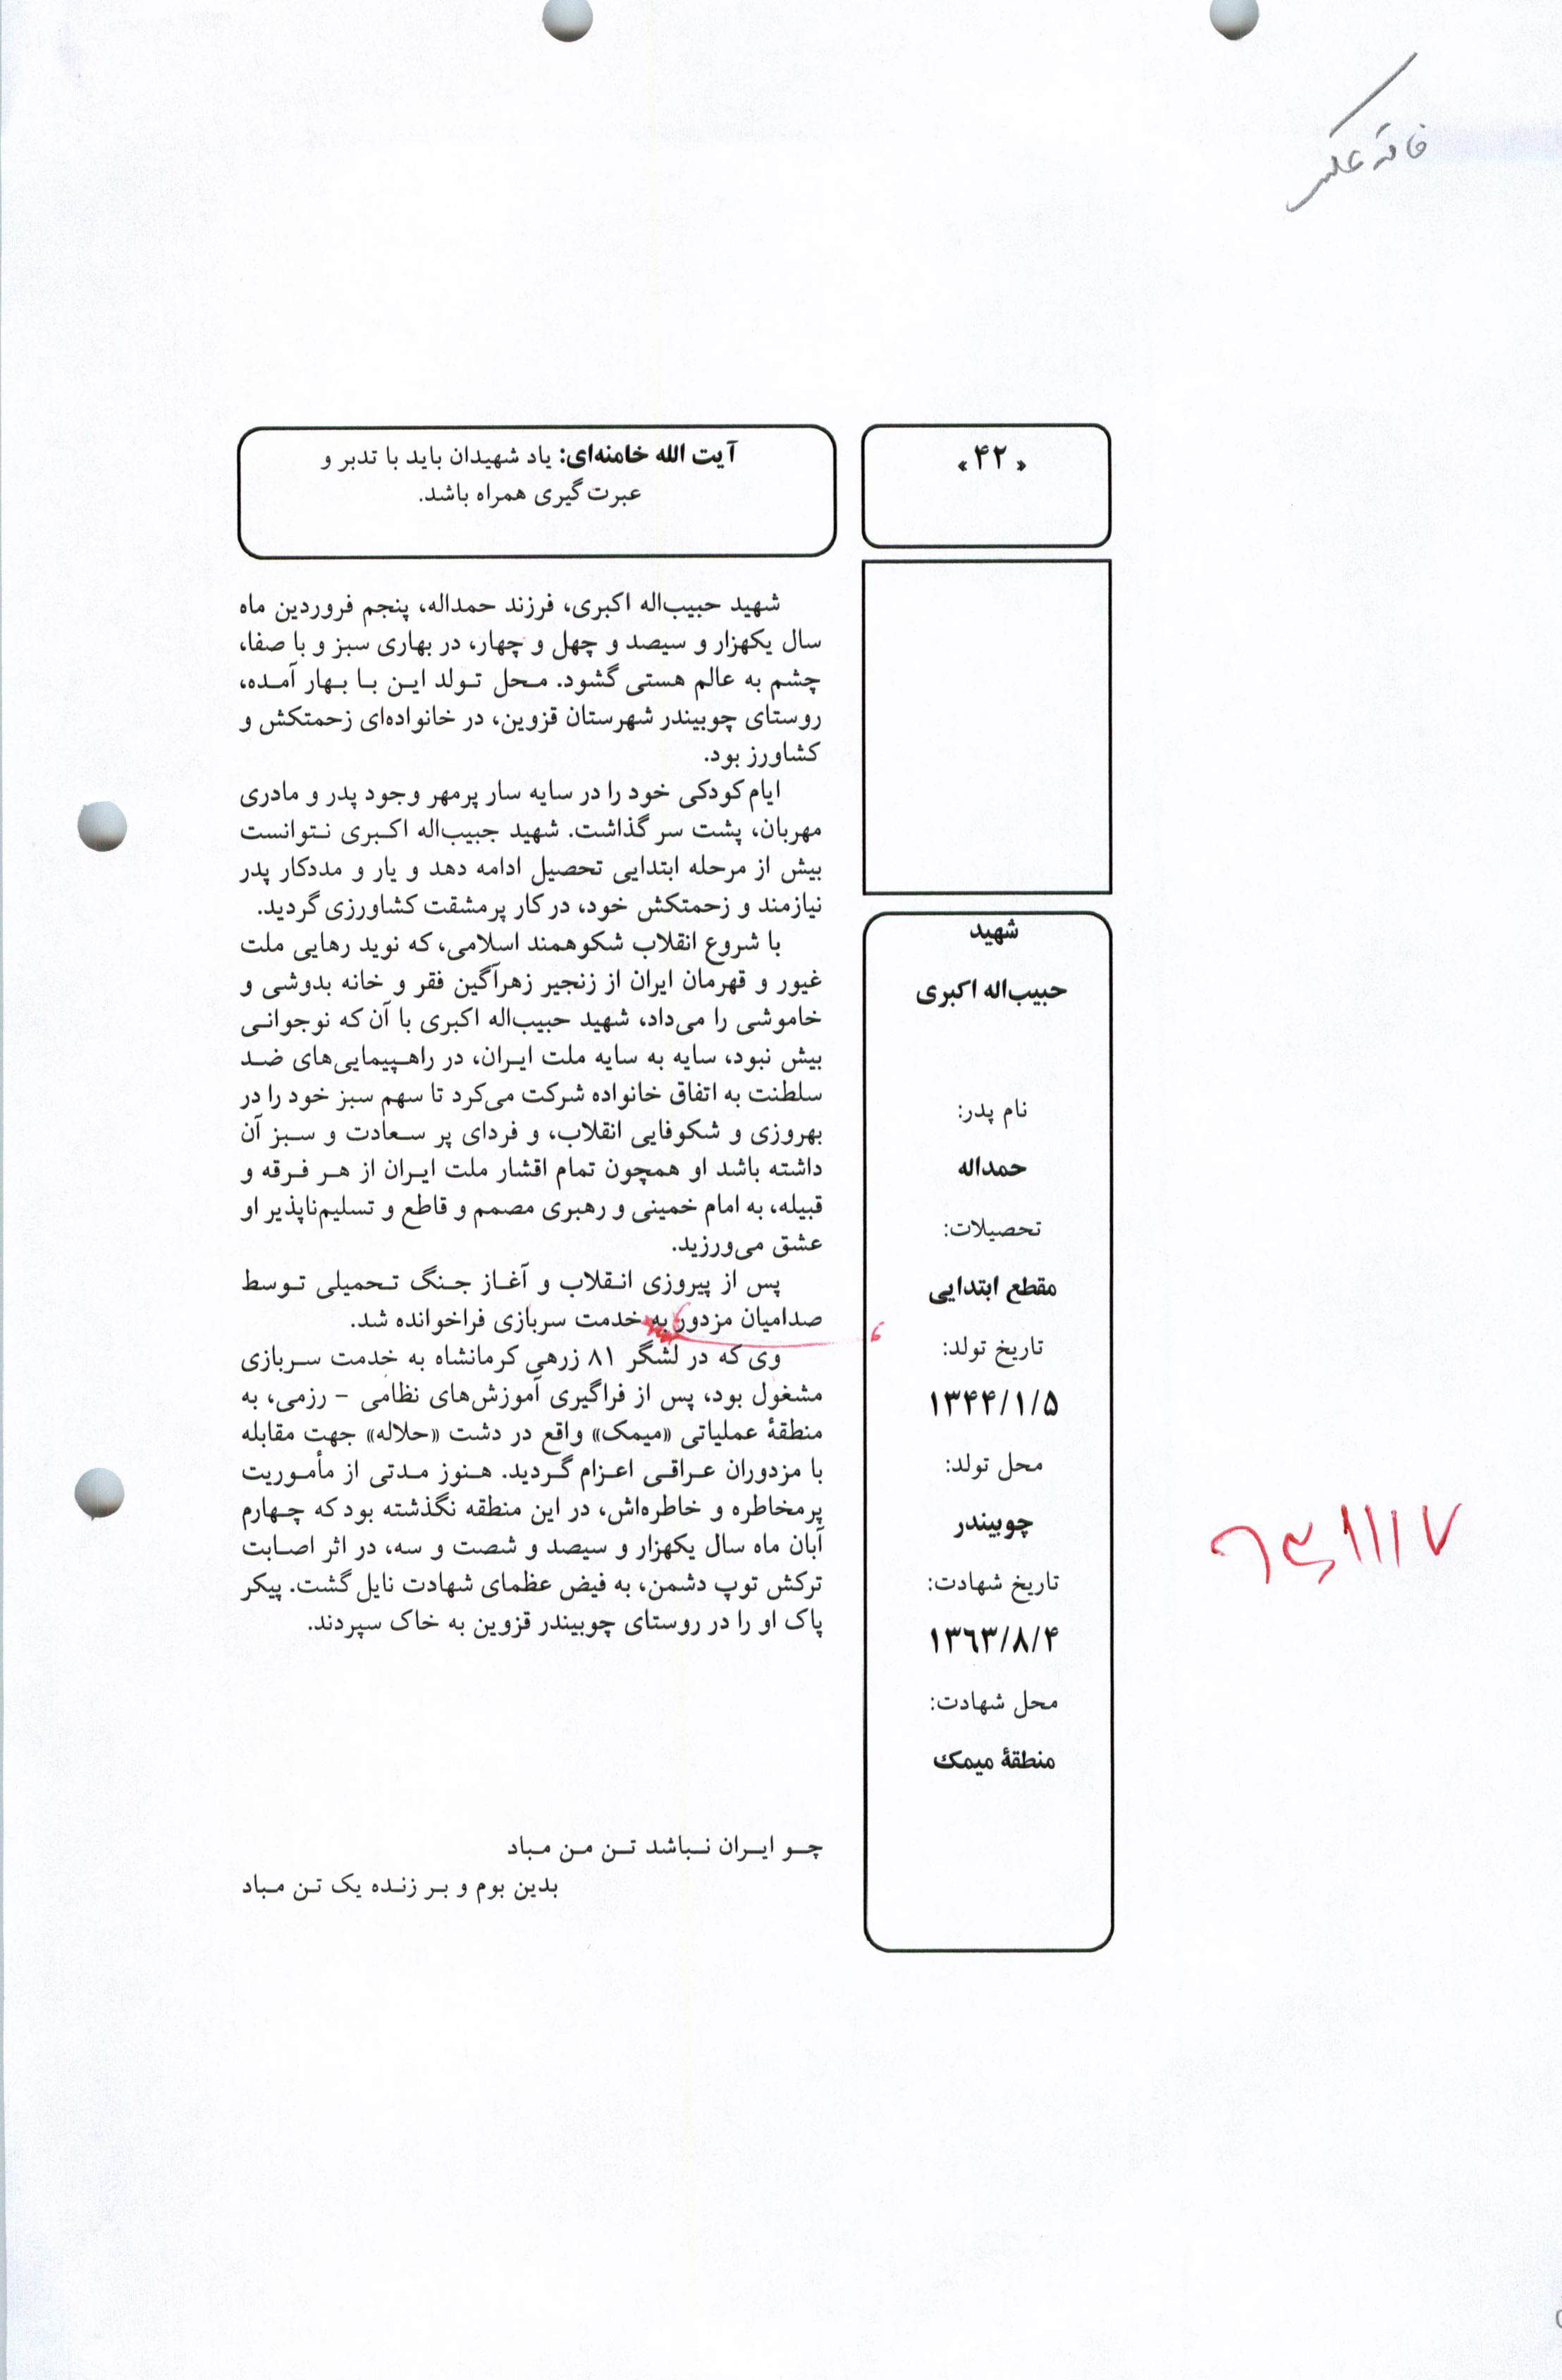 فاقد عکس
« ۴۲ »
آیت الله خامنه‌ای: یاد شهیدان باید با تدبر و
عبرت گیری همراه باشد.
شهید
حبیب‌اله اکبری
نام پدر:
حمداله
تحصیلات:
مقطع ابتدایی
تاریخ تولد:
۱۳۴۴/۱/۵
محل تولد:
چوبیندر
تاریخ شهادت:
۱۳۶۳/۸/۴
محل شهادت:
منطقهٔ میمک
شهید حبیب‌اله اکبری، فرزند حمداله، پنجم فروردین ماه
سال یکهزار و سیصد و چهل و چهار، در بهاری سبز و با صفا،
چشم به عالم هستی گشود. محل تولد این با بهار آمده،
روستای چوبیندر شهرستان قزوین، در خانواده‌ای زحمتکش و
کشاورز بود.
ایام کودکی خود را در سایه سار پرمهر وجود پدر و مادری
مهربان، پشت سر گذاشت. شهید جبیب‌اله اکبری نتوانست
بیش از مرحله ابتدایی تحصیل ادامه دهد و یار و مددکار پدر
نیازمند و زحمتکش خود، در کار پرمشقت کشاورزی گردید.
با شروع انقلاب شکوهمند اسلامی، که نوید رهایی ملت
غیور و قهرمان ایران از زنجیر زهرآگین فقر و خانه بدوشی و
خاموشی را می‌داد، شهید حبیب‌اله اکبری با آن که نوجوانی
بیش نبود، سایه به سایه ملت ایران، در راهپیمایی‌های ضد
سلطنت به اتفاق خانواده شرکت می‌کرد تا سهم سبز خود را در
بهروزی و شکوفایی انقلاب، و فردای پر سعادت و سبز آن
داشته باشد او همچون تمام اقشار ملت ایران از هر فرقه و
قبیله، به امام خمینی و رهبری مصمم و قاطع و تسلیم‌ناپذیر او
عشق می‌ورزید.
پس از پیروزی انقلاب و آغاز جنگ تحمیلی توسط
صدامیان مزدور به خدمت سربازی فراخوانده شد.
وی که در لشگر ۸۱ زرهی کرمانشاه به خدمت سربازی
مشغول بود، پس از فراگیری آموزش‌های نظامی - رزمی، به
منطقهٔ عملیاتی «میمک» واقع در دشت «حلاله» جهت مقابله
با مزدوران عراقی اعزام گردید. هنوز مدتی از مأموریت
پرمخاطره و خاطره‌اش، در این منطقه نگذشته بود که چهارم
آبان ماه سال یکهزار و سیصد و شصت و سه، در اثر اصابت
ترکش توپ دشمن، به فیض عظمای شهادت نایل گشت. پیکر
پاک او را در روستای چوبیندر قزوین به خاک سپردند.
چو ایران نباشد تن من مباد
بدین بوم و بر زنده یک تن مباد